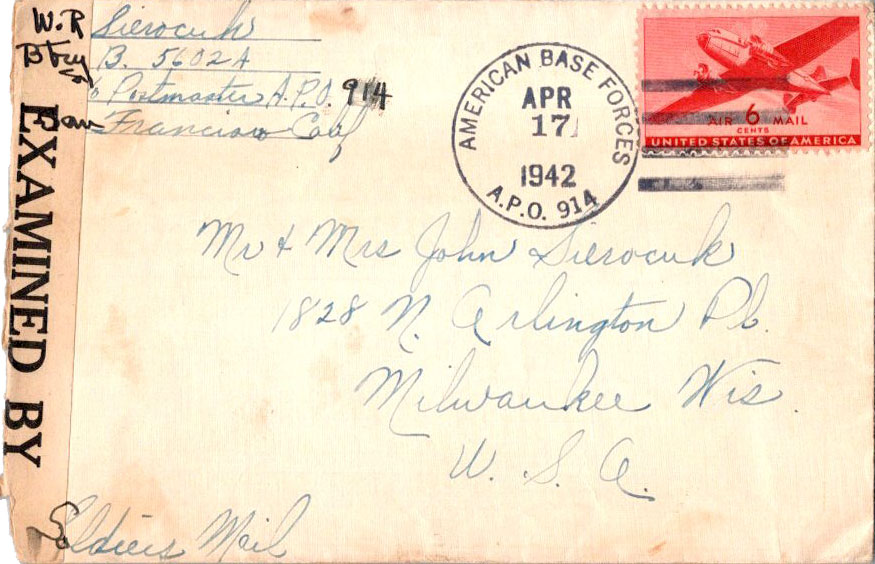 W.R Sierocuk
Btry B. 5602A
c/o Postmaster A.P.O. 914
San Francisco Calif
AMERICAN BASE FORCES
APR
17
1942
A.P.O. 914
AIR 6 MAIL
CENTS
UNITED STATES OF AMERICA
EXAMINED BY
Mr & Mrs John Sierocuk
1828 N. Arlington Pl.
Milwaukee Wis.
U. S. A.
Soldiers Mail